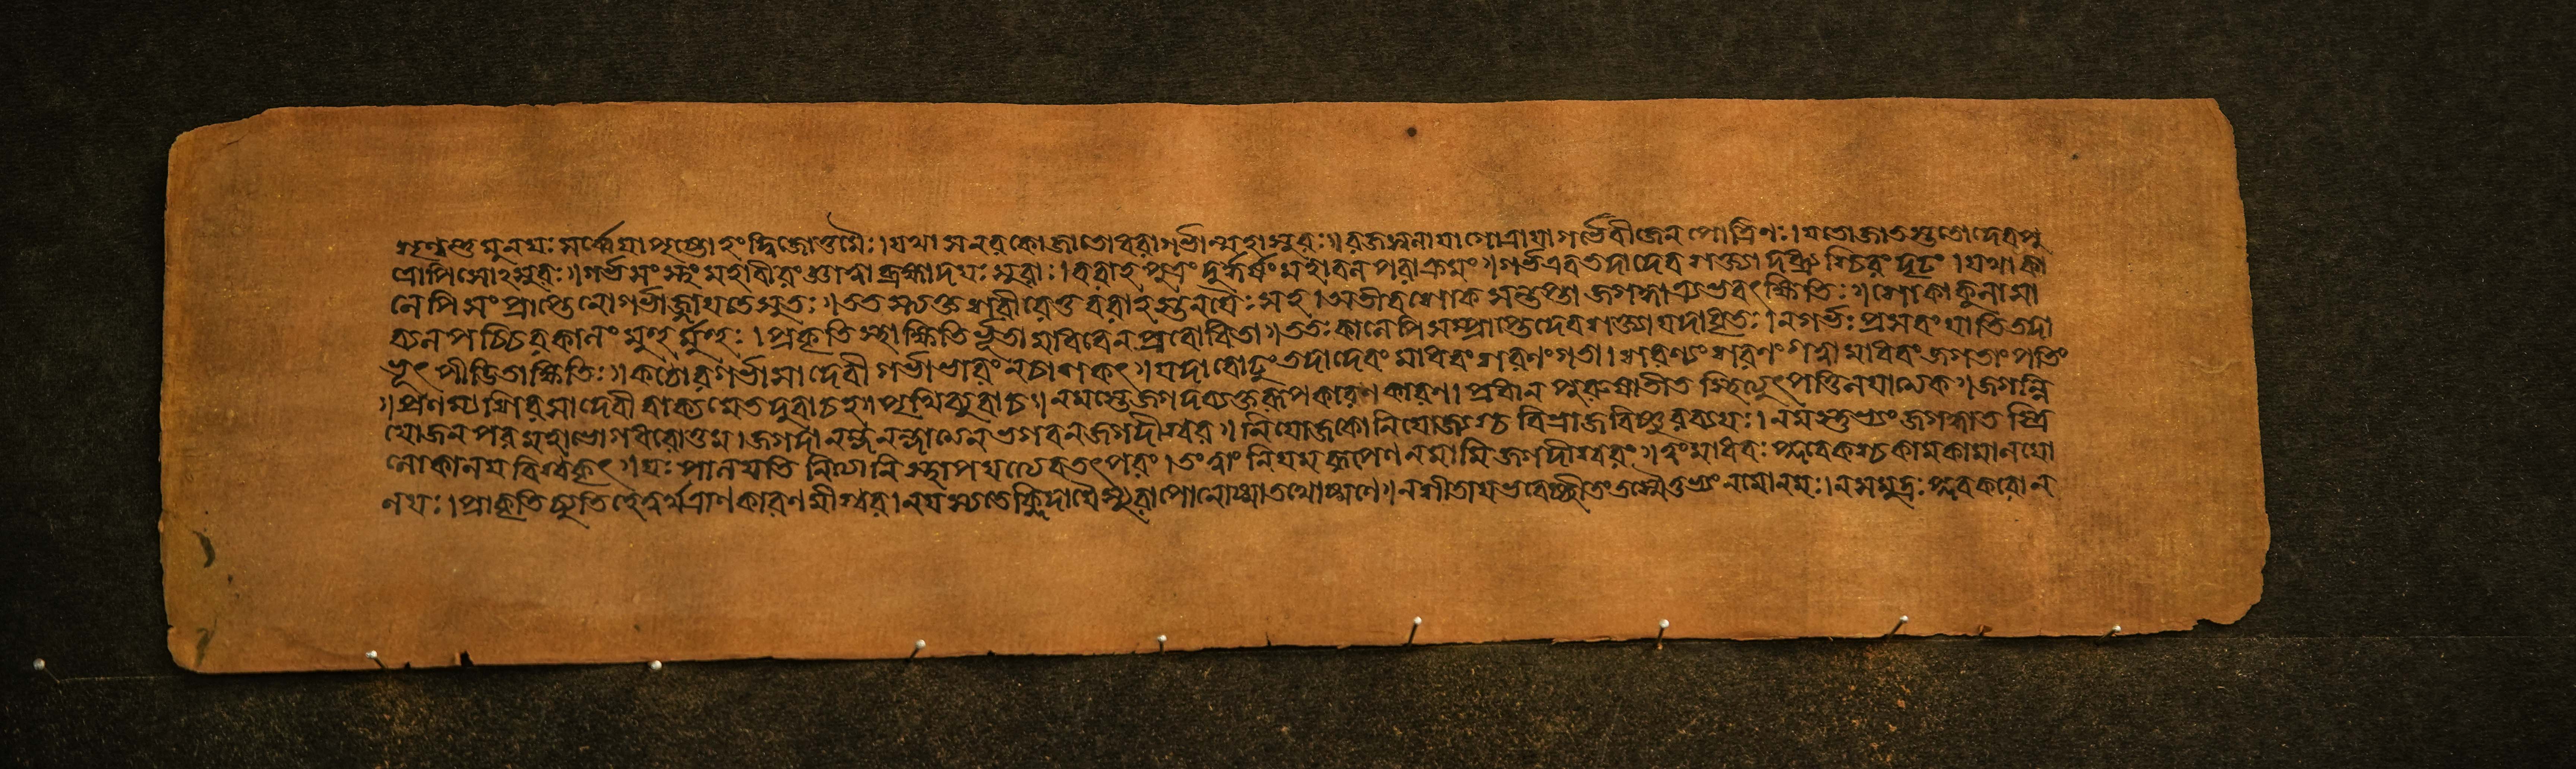 শৃণ্বন্তু মুনয়ঃ সর্ব্বে যৎ পৃষ্টোহং দ্বিজোত্তমৈঃ। যথা স নরকো জাতো ধরাগর্ভান্মহাসুরঃ॥ রজস্বলায়া গোত্রায়া গর্ভে বীজেন পোত্রিণঃ। যতো জাতস্ততো দেবপু
ত্রোপি সোঽসুরঃ॥ গর্ভসংস্থং মহাবীরং জ্ঞাত্বা ব্রহ্মাদয়ঃ সুরাঃ। বরাহপুত্রং দুর্দ্ধর্ষং মহাবলপরাক্রমং॥ গর্ভএব তদা দেবশক্ত্যা দধ্রুশ্চিরং দৃঢং। যথা কা
লেপি সংপ্রাপ্তে নো গর্ভাজ্জায়তে সুতঃ॥ ততস্ত্যক্তশরীরেতু বরাহস্তনয়ৈঃ সহ। অতীবশোকসন্তপ্তা জগদ্ধাত্র্যভবৎ ক্ষিতিঃ॥ শোকাকুলা সা
ব্যলপচ্চিরকালং মুহুর্মুহুঃ। প্রকৃতিস্থা ক্ষিতির্ভূতা মাধবেন প্রবোধিতা॥ ততঃ কালেপি সম্প্রাপ্তে দেবশক্ত্যা যদা ধৃতঃ। ন গর্ভঃ প্রসবং যাতি তদা
ভূৎ পীডিতা ক্ষিতিঃ॥ কঠোরগর্ভা সা দেবী গর্ভভারং ন চাশকৎ। যদা বোঢুং তদা দেবং মাধবং শরণং গতা। শরণ্যং শরণং গত্বা মাধবং জগতাং পতিং
॥ প্রণম্য শিরসা দেবী বাক্যমেতদুবাচ হ॥ পৃথিব্যুবাচ॥ নমস্তে জগদব্যক্তরূপ কারণকারণ। প্রধানপুরুষাতীত স্থিত্যুৎপত্তিলয়াত্মক॥ জগন্নি
যোজনপর মহাভোগধরোত্তম। জগদানন্দনন্দাত্মন ভগবন জগদীশ্বর॥ নিয়োজকো নিয়োজ্যশ্চ বিভ্রাজ বিষ্ণুরব্যয়ঃ। নমস্তুভ্যং জগদ্ধাত স্ত্রি
লোকালয় বিশ্বকৃৎ॥ যঃ পালয়তি নিত্যানি স্থাপয়ত্যেব তৎপরং। তং ত্বাং নিয়মরূপেণ নমামি জগদীশ্বরং॥ ত্বং মাধবঃ প্লবকশ্চ কামকামালয়ো
লয়ঃ। প্রাকৃতি চ্যুতিহেত্বর্থত্রাণকারণমীশ্বর। ন যস্য তে ক্লেদায় বৈ স্যুরাপো নোষ্মা তথোষ্মণে॥ ন শীতায় ভবেচ্ছীতং তস্মৈ তুভ্যং নমো নমঃ। ন সমুদ্রঃ প্লবকরো ন